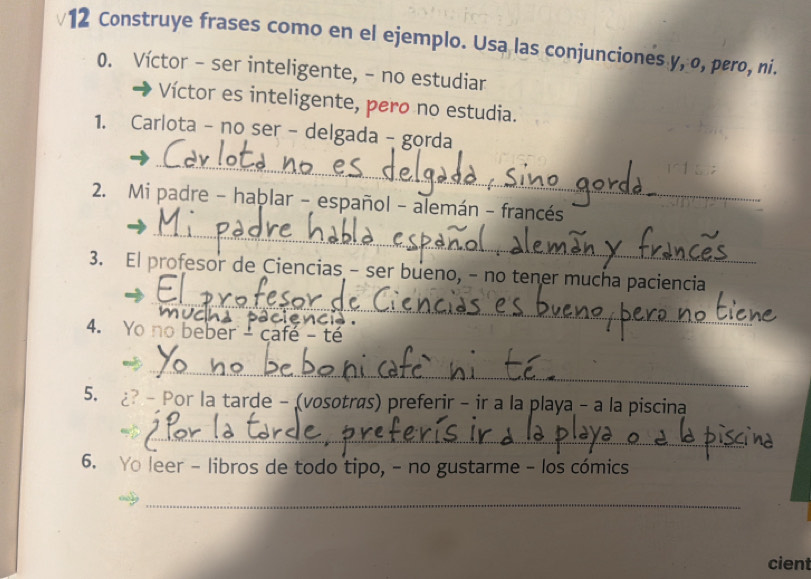 12 Construye frases como en el ejemplo. Usa las conjunciones y, o, pero, ni.
0. Víctor - ser inteligente, - no estudiar
→ Víctor es inteligente, pero no estudia.
1. Carlota - no ser - delgada - gorda
→ Carlota no es delgada, sino gorda.
2. Mi padre - hablar - español - alemán - francés
→ Mi padre habla español, alemán y francés
3. El profesor de Ciencias - ser bueno, - no tener mucha paciencia
→ El profesor de Ciencias es bueno, pero no tiene
mucha paciencia.
4. Yo no beber - café - té
→ Yo no bebo ni cafè ni té.
5. ¿? - Por la tarde - (vosotras) preferir - ir a la playa - a la piscina
→ ¿Por la tarde, preferís ir a la playa o a la piscina
6. Yo leer - libros de todo tipo, - no gustarme - los cómics
→
cient